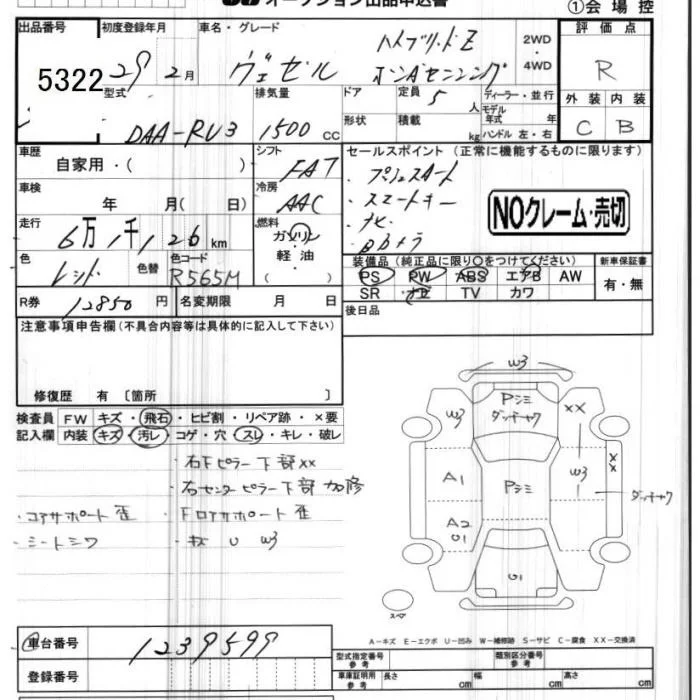 オークション出品申込書
①会場控
出品番号 初度登録年月 車名・グレード 評価点
5322 29 2月 ヴェゼル ハイブリッドZ ホンダセンシング 2WD・4WD R
型式 排気量 ドア 定員 5人 ディーラー・並行 外装 内装
DAA-RU3 1500cc 形状 積載 kg モデル年式 年 ハンドル 左・右 C B
車歴 シフト セールスポイント(正常に機能するものに限ります)
自家用・( ) FAT ・プッシュスタート
車検 冷房 ・スマートキー
年 月( 日) AAC ・ナビ NOクレーム・売切
走行 燃料 ・Bカメラ
6万1千126km ガソリン
色 色替 色コード 軽油・ 装備品(純正品に限り○をつけてください) 新車保証書
レッド R565M ( ) PS PW ABS エアB AW 有・無
R券 12850円 名変期限 月 日 SR ナビ TV カワ
注意事項申告欄(不具合内容等は具体的に記入して下さい) 後日品
修復歴 有〔箇所 〕
検査員 FW キズ・飛石・ヒビ割・リペア跡・×要
記入欄 内装 キズ・汚レ・コゲ・穴・スレ・キレ・破レ
・右Fピラー下部XX
・右センターピラー下部加修
・コアサポート歪 ・Fロアサポート歪
・シートシワ ・キズ U W3
W3
W3 Pシミ XX
ダッチャク
A1 Pシミ W3 XX
ダッチャク
A2
U1
U1
スペア
車台番号 1239599
A-キズ E-エクボ U-凹み W-補修跡 S-サビ C-腐食 XX-交換済
型式指定番号参考 類別区分番号参考
登録番号 車庫証明用参考 長さ cm 幅 cm 高さ cm